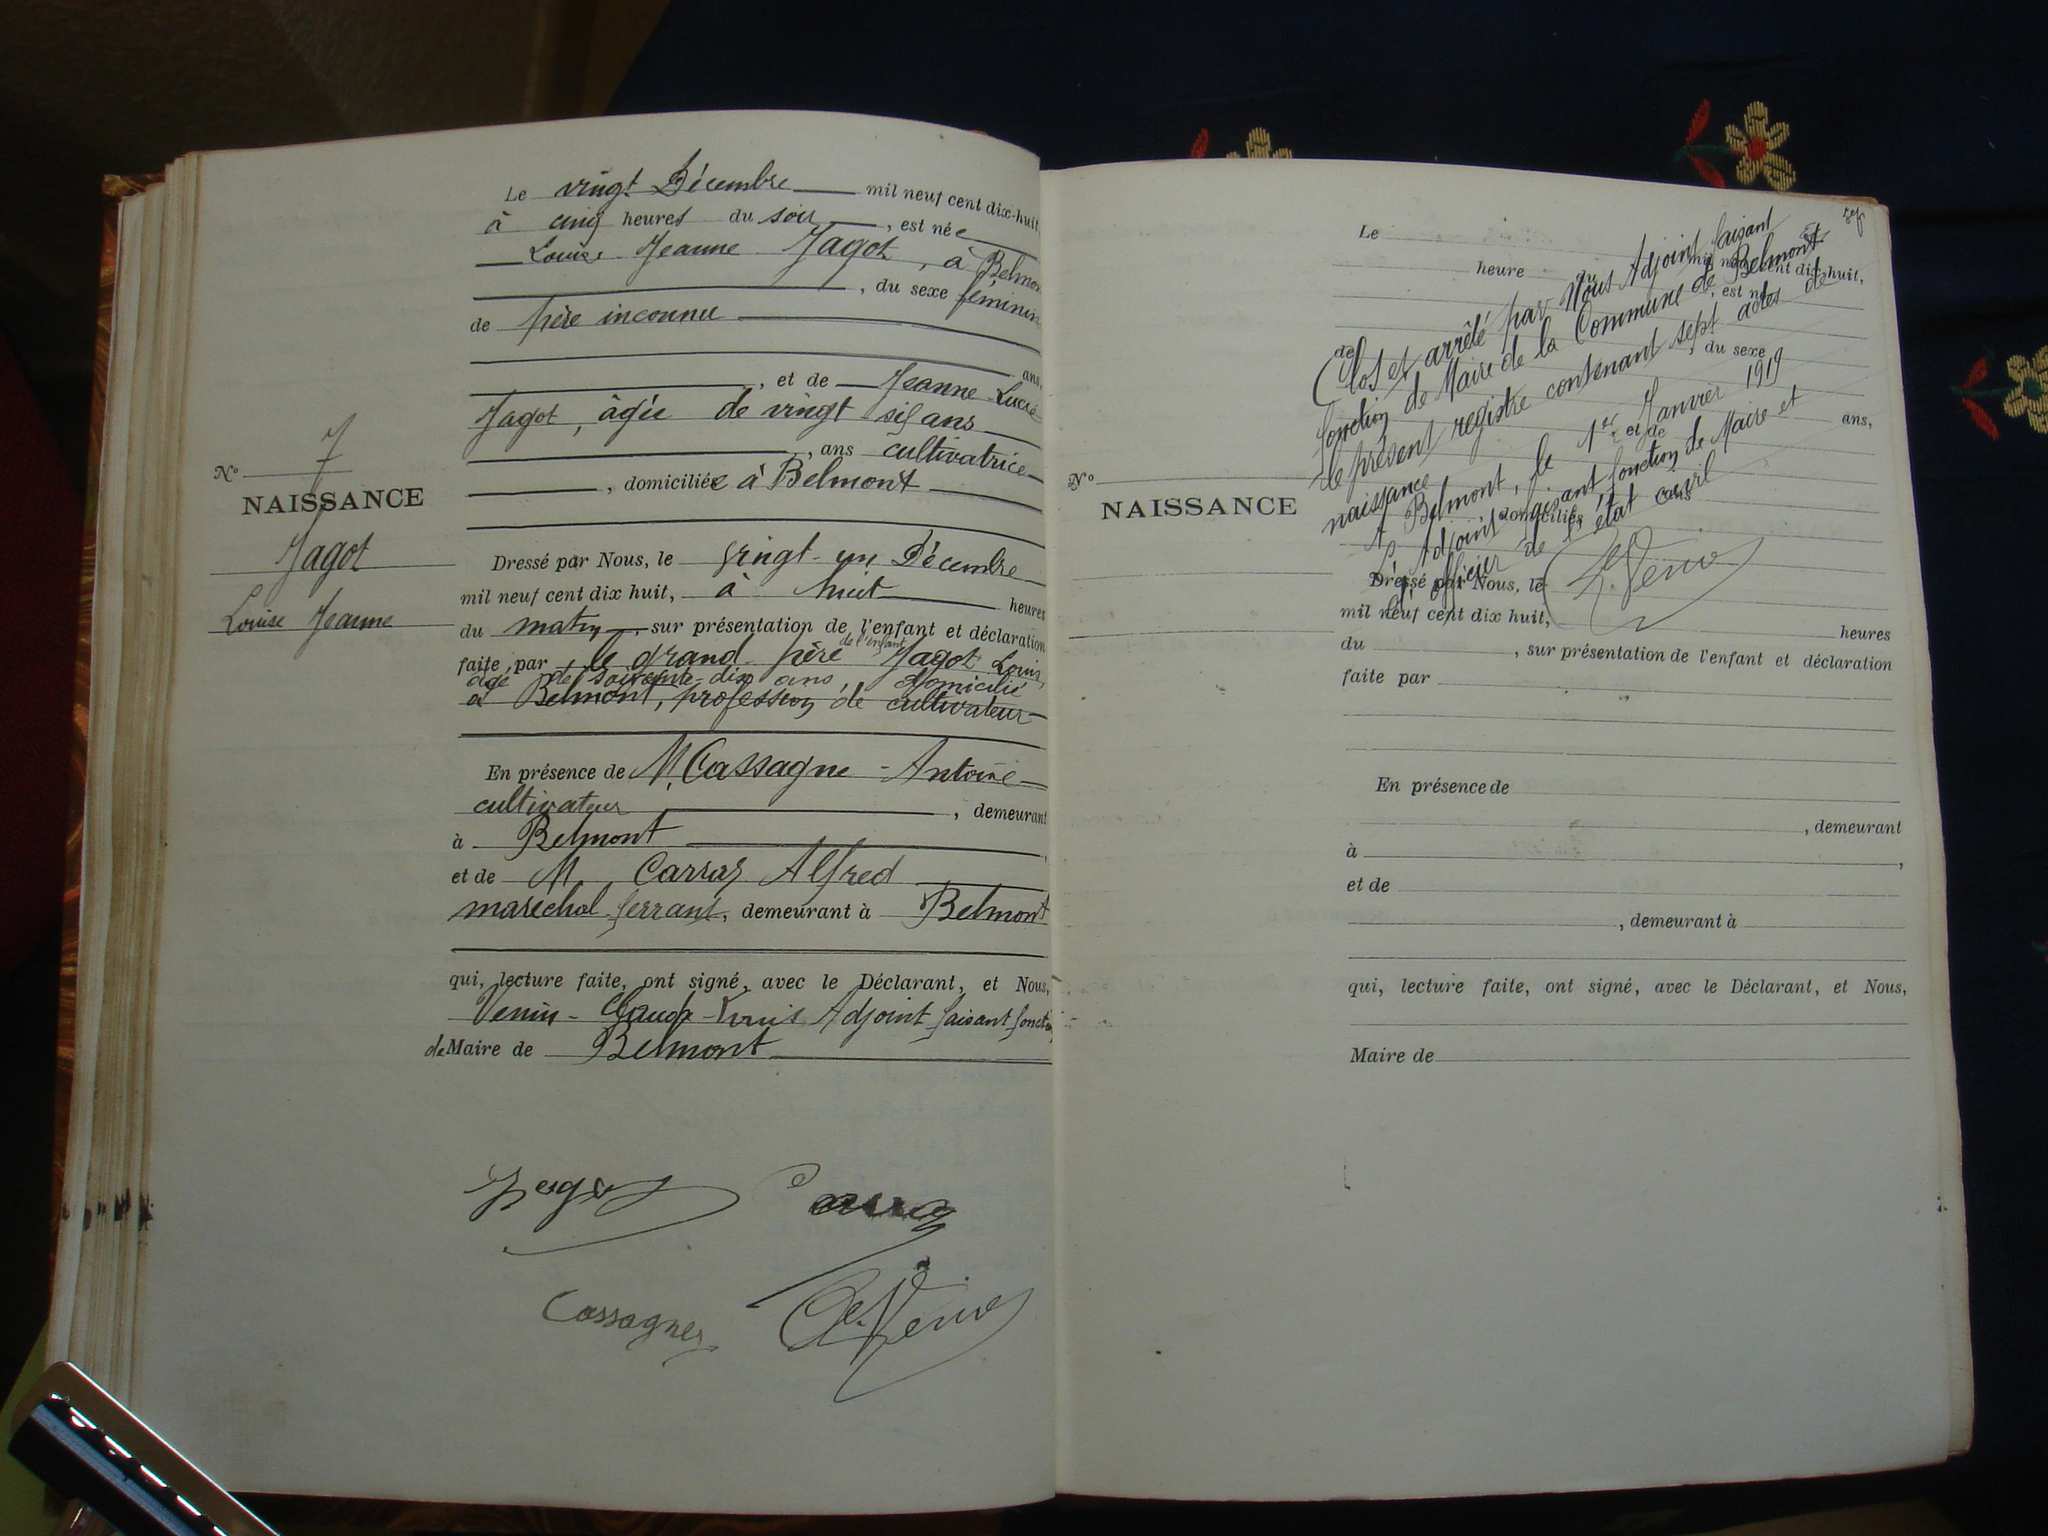 Le vingt Décembre mil neuf cent dix-huit,
à cinq heures du soir, est née
Louise Jeanne Jagot, à Belmont
, du sexe féminin
de père inconnu
ans,
, et de Jeanne Lucie
Jagot, âgée de vingt six ans
, ans cultivatrice
, domiciliée à Belmont
N° 7
NAISSANCE
Jagot
Louise Jeanne
Dressé par Nous, le vingt-un Décembre
mil neuf cent dix huit, à huit heures
du matin, sur présentation de l'enfant et déclaration
faite par le grand père de l'enfant Jagot Louis,
âgé de soixante-dix ans, domicilié
à Belmont, profession de cultivateur
En présence de M. Cassagne Antoine
cultivateur, demeurant
à Belmont,
et de M. Alfred
maréchal ferrant, demeurant à Belmont
qui, lecture faite, ont signé, avec le Déclarant, et Nous,
Adjoint faisant fonction
de Maire de Belmont
Cassagnes
Le mil neuf cent dix huit,
heure du , est né
, du sexe
de
ans,
et de
ans
domicilié
N°
NAISSANCE
Clos et arrêté par Nous Adjoint faisant
fonction de Maire de la Commune de Belmont
le présent registre contenant sept actes de
naissance
A Belmont, le 1er Janvier 1919
L'Adjoint faisant fonction de Maire et
d'officier de l'état civil
Dressé par Nous, le
mil neuf cent dix huit, heures
du , sur présentation de l'enfant et déclaration
faite par
En présence de
, demeurant
à ,
et de
, demeurant à
qui, lecture faite, ont signé, avec le Déclarant, et Nous,
Maire de